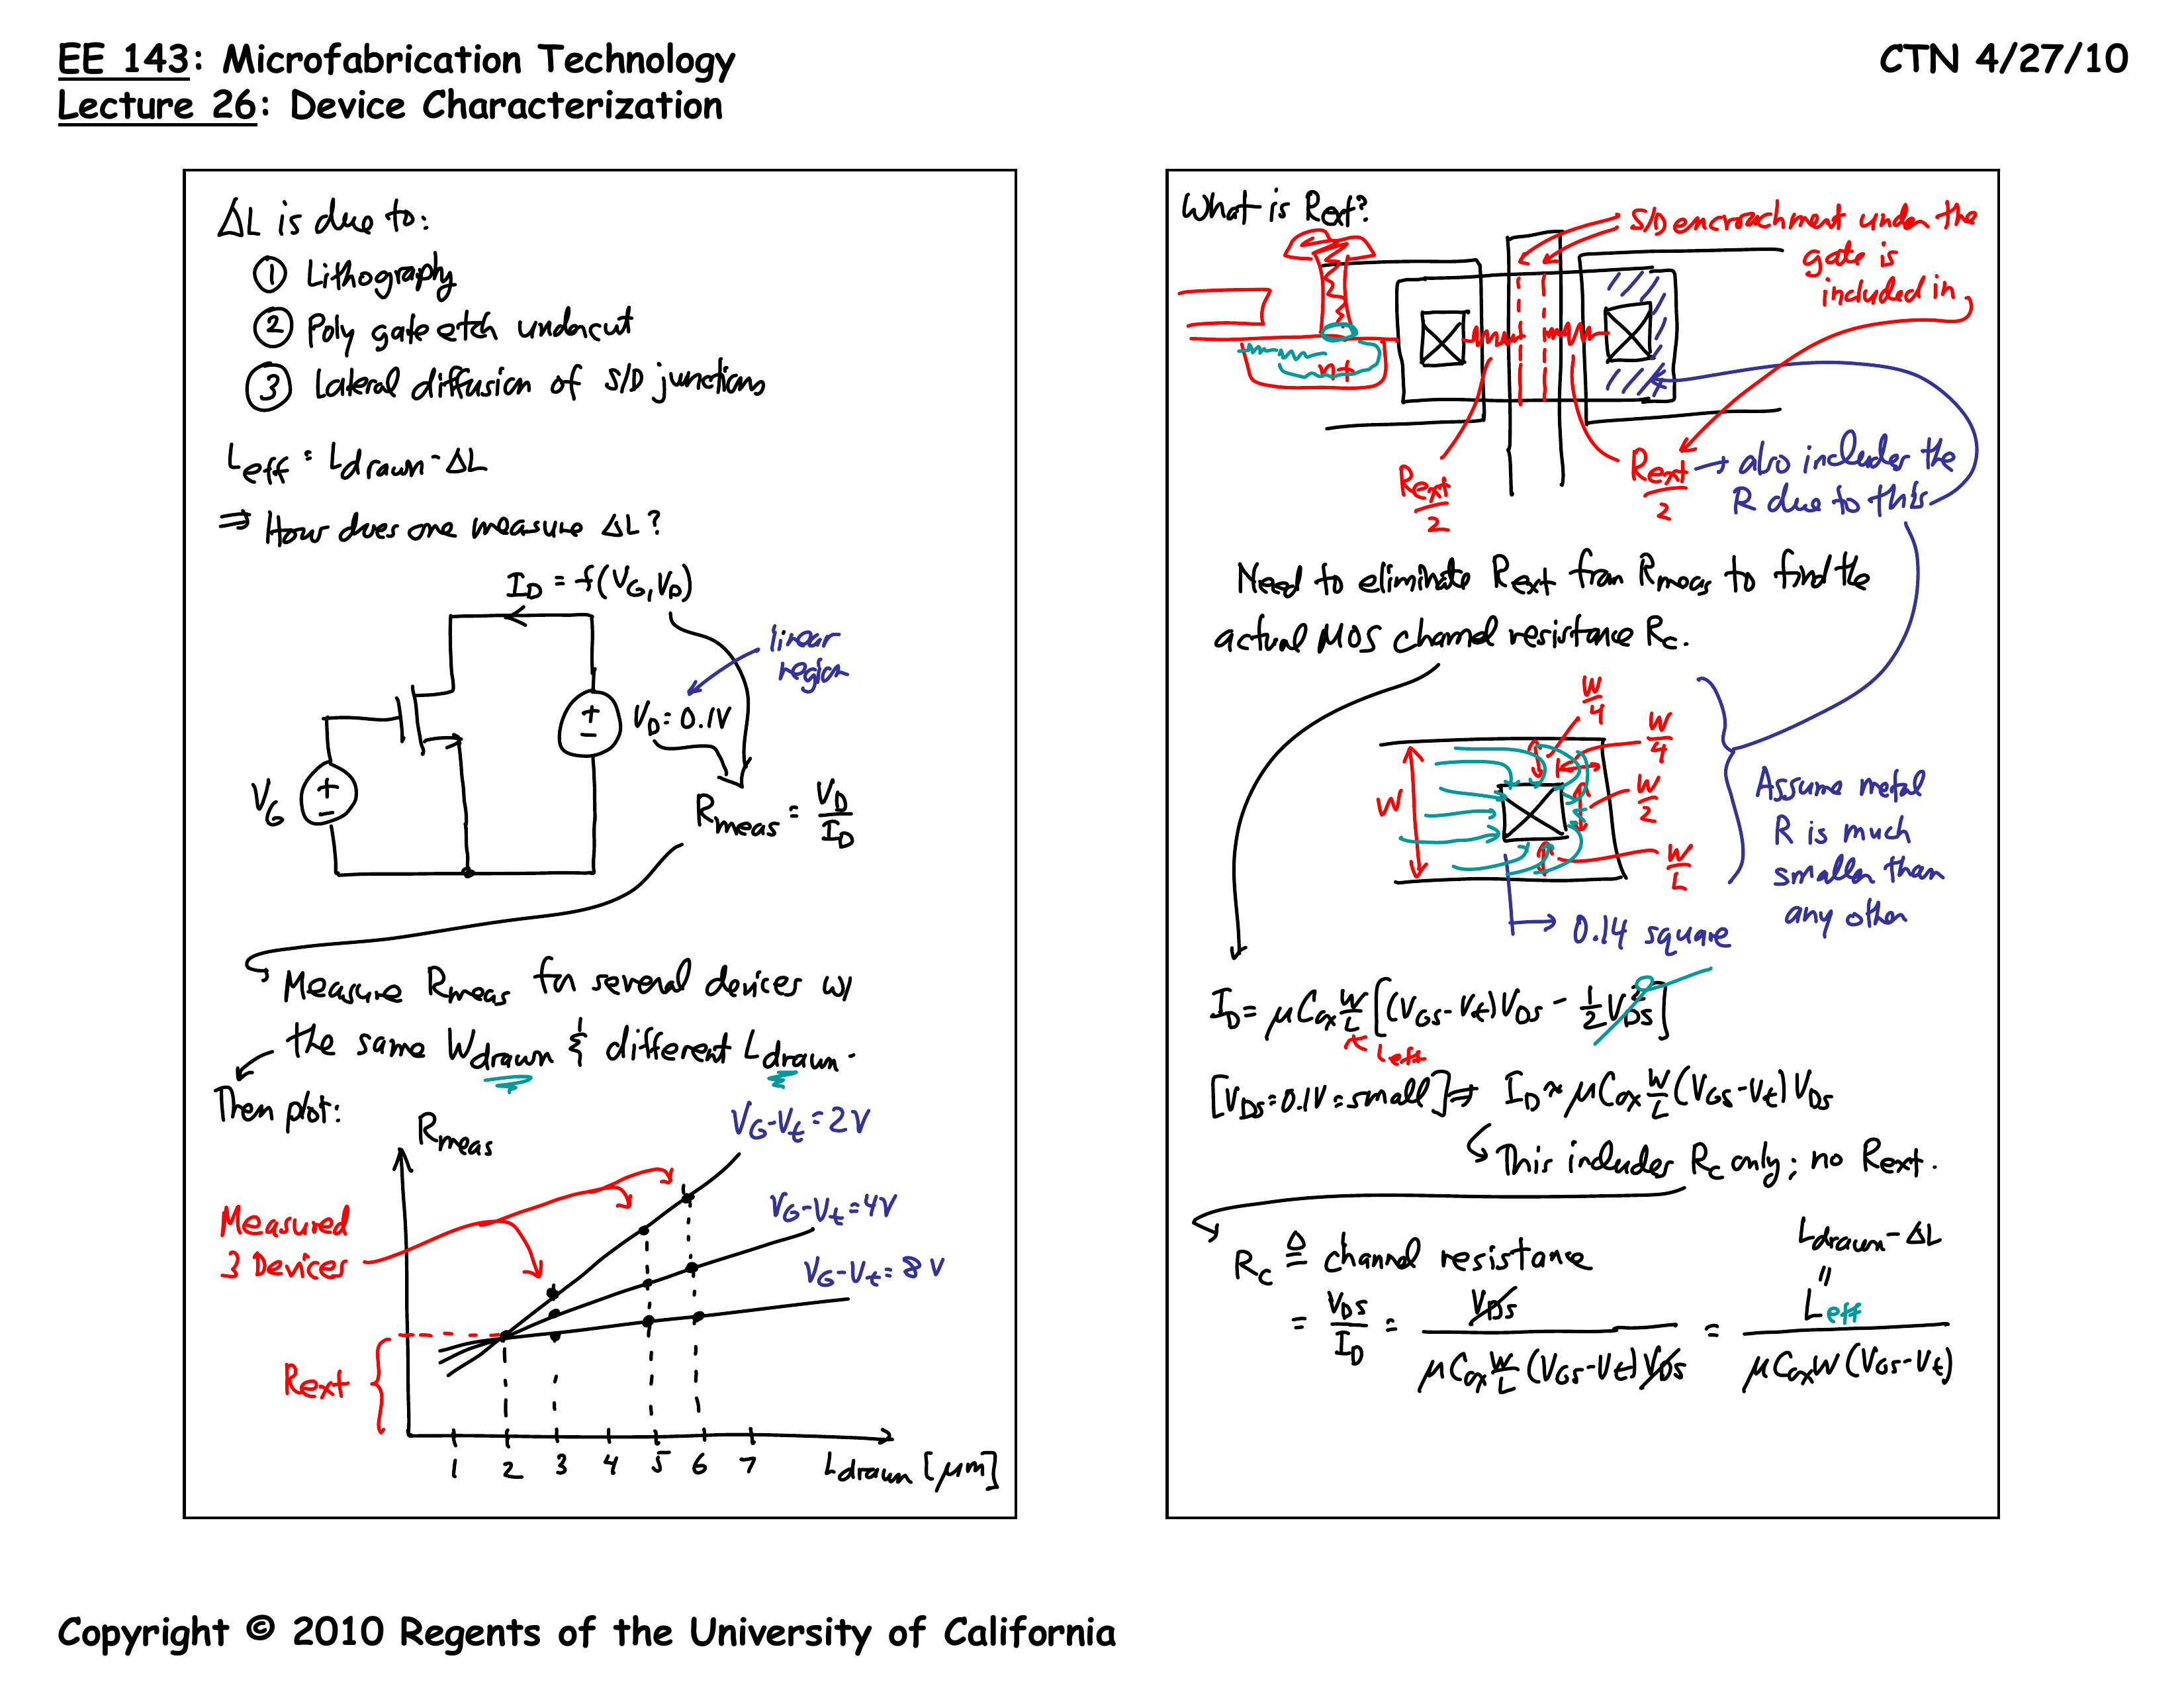 EE 143: Microfabrication Technology
CTN 4/27/10
Lecture 26: Device Characterization
ΔL is due to:
① Lithography
② Poly gate etch undercut
③ Lateral diffusion of S/D junctions
Leff = Ldrawn - ΔL
⇒ How does one measure ΔL?
ID = f(VG, VD)
linear
region
VD = 0.1V
+
−
VG
+
−
Rmeas = VD/ID
Measure Rmeas for several devices w/
the same Wdrawn & different Ldrawn.
Then plot:
Rmeas
VG-Vt = 2V
VG-Vt = 4V
VG-Vt = 8V
Measured
3 Devices
Rext
1 2 3 4 5 6 7
Ldrawn [μm]
What is Rext?
S/D encroachment under the
gate is
included in
n+
Rext/2
Rext/2 → also includes the
R due to this
Need to eliminate Rext from Rmeas to find the
actual MOS channel resistance Rc.
W/4
W/4
W
W/2
W/L
0.14 square
Assume metal
R is much
smaller than
any other
ID = μCox W/L [(VGS-Vt)VDS - 1/2 VDS²]
Leff
0
[VDS = 0.1V = small] ⇒ ID ≈ μCox W/L (VGS-Vt) VDS
This includes Rc only; no Rext.
Rc ≜ channel resistance
Ldrawn - ΔL
= VDS/ID = VDS / μCox W/L (VGS-Vt) VDS = Leff / μCoxW (VGS-Vt)
Copyright © 2010 Regents of the University of California